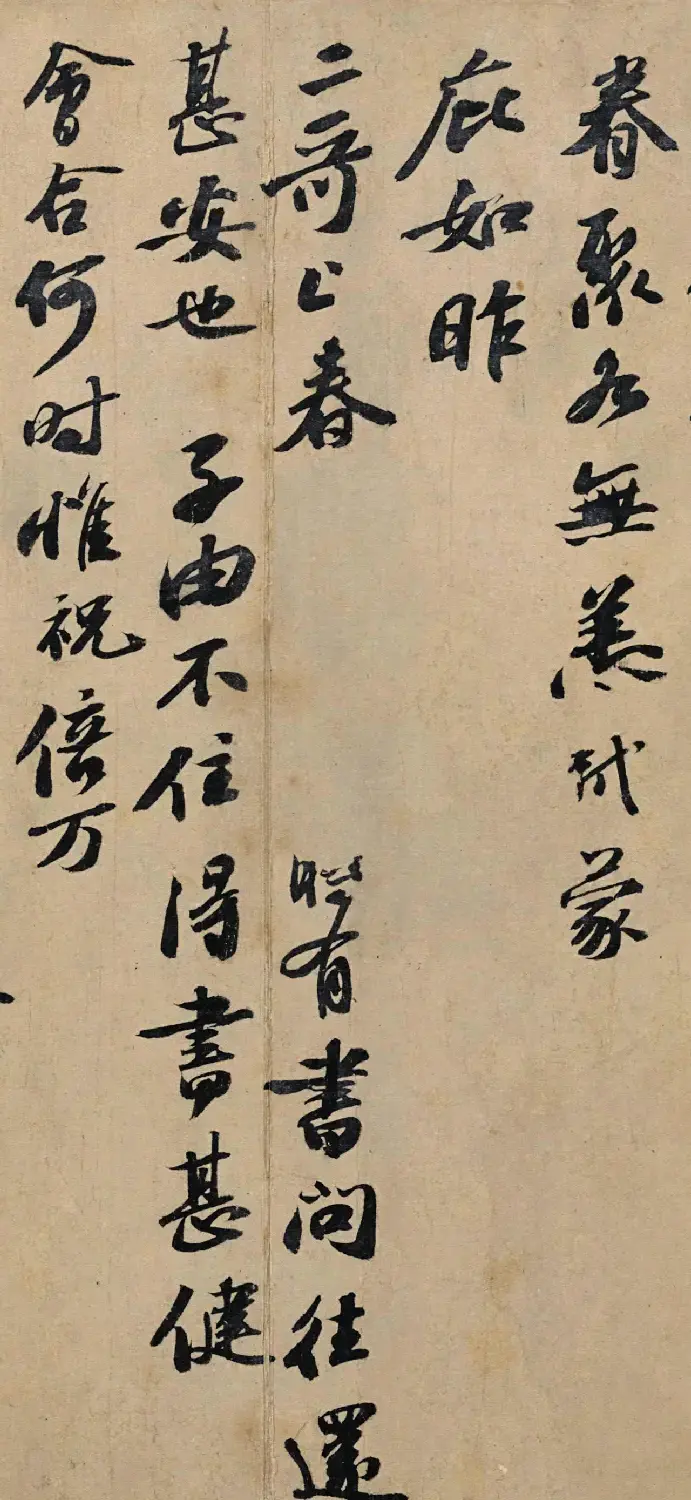 眷聚各無恙軾蒙
庇如昨
二哥上春時有書問往還
甚安也子由不住得書甚健
會合何时惟祝倍万